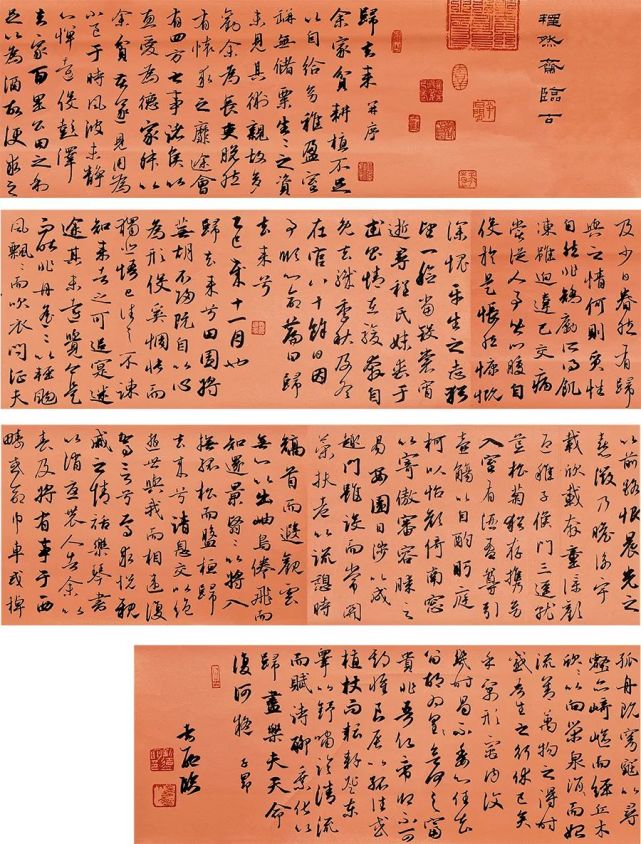 然齋臨古
歸去來并序
余家貧耕植不足
以自給幼稚盈室
缾無儲粟生々之資
未見其術親故多
勸余為長吏脫然
有懷求之靡途會
有四方之事諸侯以
惠愛為德家叔以
余貧苦遂見用為
小邑于時風波未靜
心憚遠役彭澤
去家百里公田之利
足以為酒故便求之
及少日眷然有歸
與之情何則質性
自然非矯勵所得飢
凍雖迫違己交病
嘗從人事皆口腹自
役於是悵然慷慨
深愧平生之志猶
望一稔當斂裳宵
逝尋程氏妹喪于
武昌情在駿奔自
免去職仲秋及冬
在官八十餘日因
事順心命篇曰歸
去來兮
乙巳歲十一月也
歸去來兮田園將
蕪胡不歸既自以心
為形役奚惆悵而
獨悲悟已往之不諫
知來者之可追寔迷
途其未遠覺今是
而昨非舟遙々以輕颺
風飄々而吹衣問征夫
以前路恨晨光之
熹微乃瞻衡宇
載欣載奔童僕歡
迎稚子候門三逕就
荒松菊猶存攜幼
入室有酒盈尊引
壺觴以自酌眄庭
柯以怡顏倚南窗
以寄傲審容膝之
易安園日涉以成
趣門雖設而常關
策扶老以流憩時
矯首而遐觀雲
無心以出岫鳥倦飛而
知還景翳々以將入
撫孤松而盤桓歸
去來兮請息交以絕
遊世與我而相違復
駕言兮焉求悅親
戚之情話樂琴書
以消憂農人告余以
春及將有事于西
疇或命巾車或棹
孤舟既窈窕以尋
壑亦崎嶇而經丘木
欣々以向榮泉涓而始
流善萬物之得時
感吾生之行休已矣
乎寓形宇內復
幾時曷不委心任去
留胡為遑遑欲何之富
貴非吾願帝鄉不可
期懷良辰以孤往或
植杖而耘耔登東
皋以舒嘯臨清流
而賦詩聊乘化以
歸盡樂夫天命
復何疑 子昂
臨